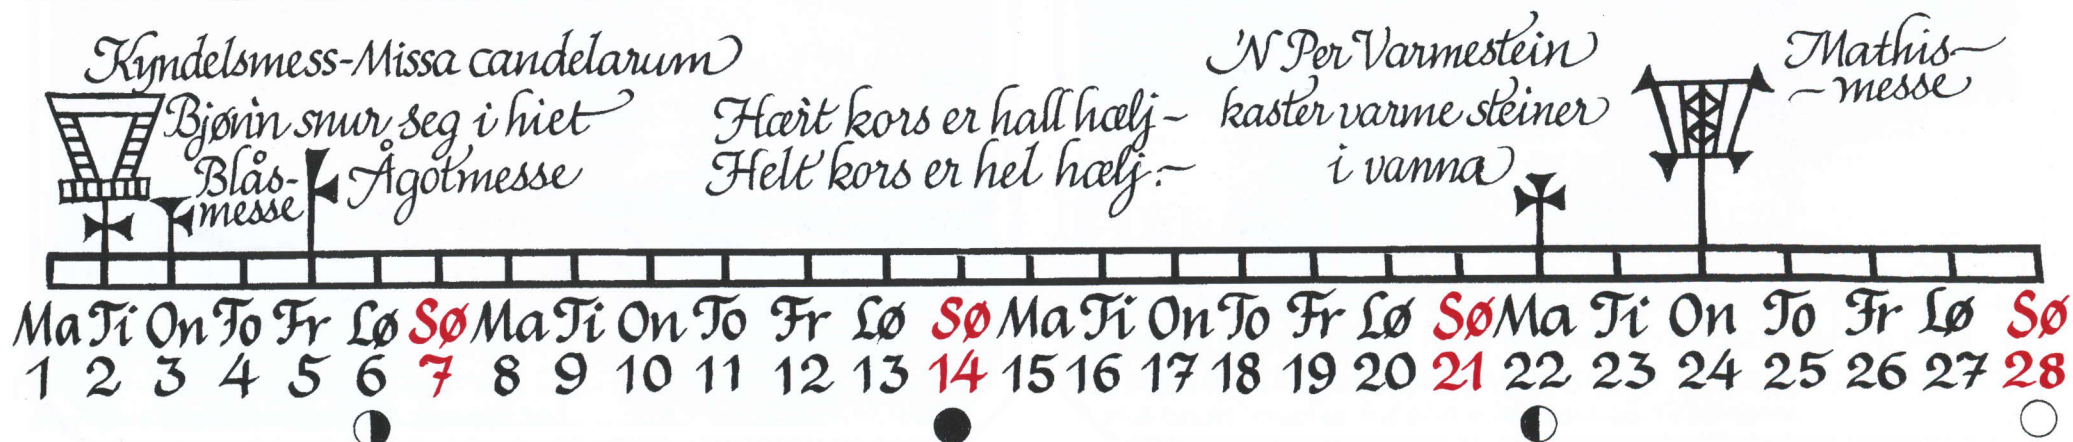 Kyndelsmess-Missa candelarum
Bjørin snur seg i hiet
Blås-
messe
Ågotmesse
Hært kors er hall hælj-
Helt kors er hel hælj.-
'N Per Varmestein
kaster varme steiner
i vanna
Mathis-
-messe
Ma Ti On To Fr Lø Sø Ma Ti On To Fr Lø Sø Ma Ti On To Fr Lø Sø Ma Ti On To Fr Lø Sø
1 2 3 4 5 6 7 8 9 10 11 12 13 14 15 16 17 18 19 20 21 22 23 24 25 26 27 28